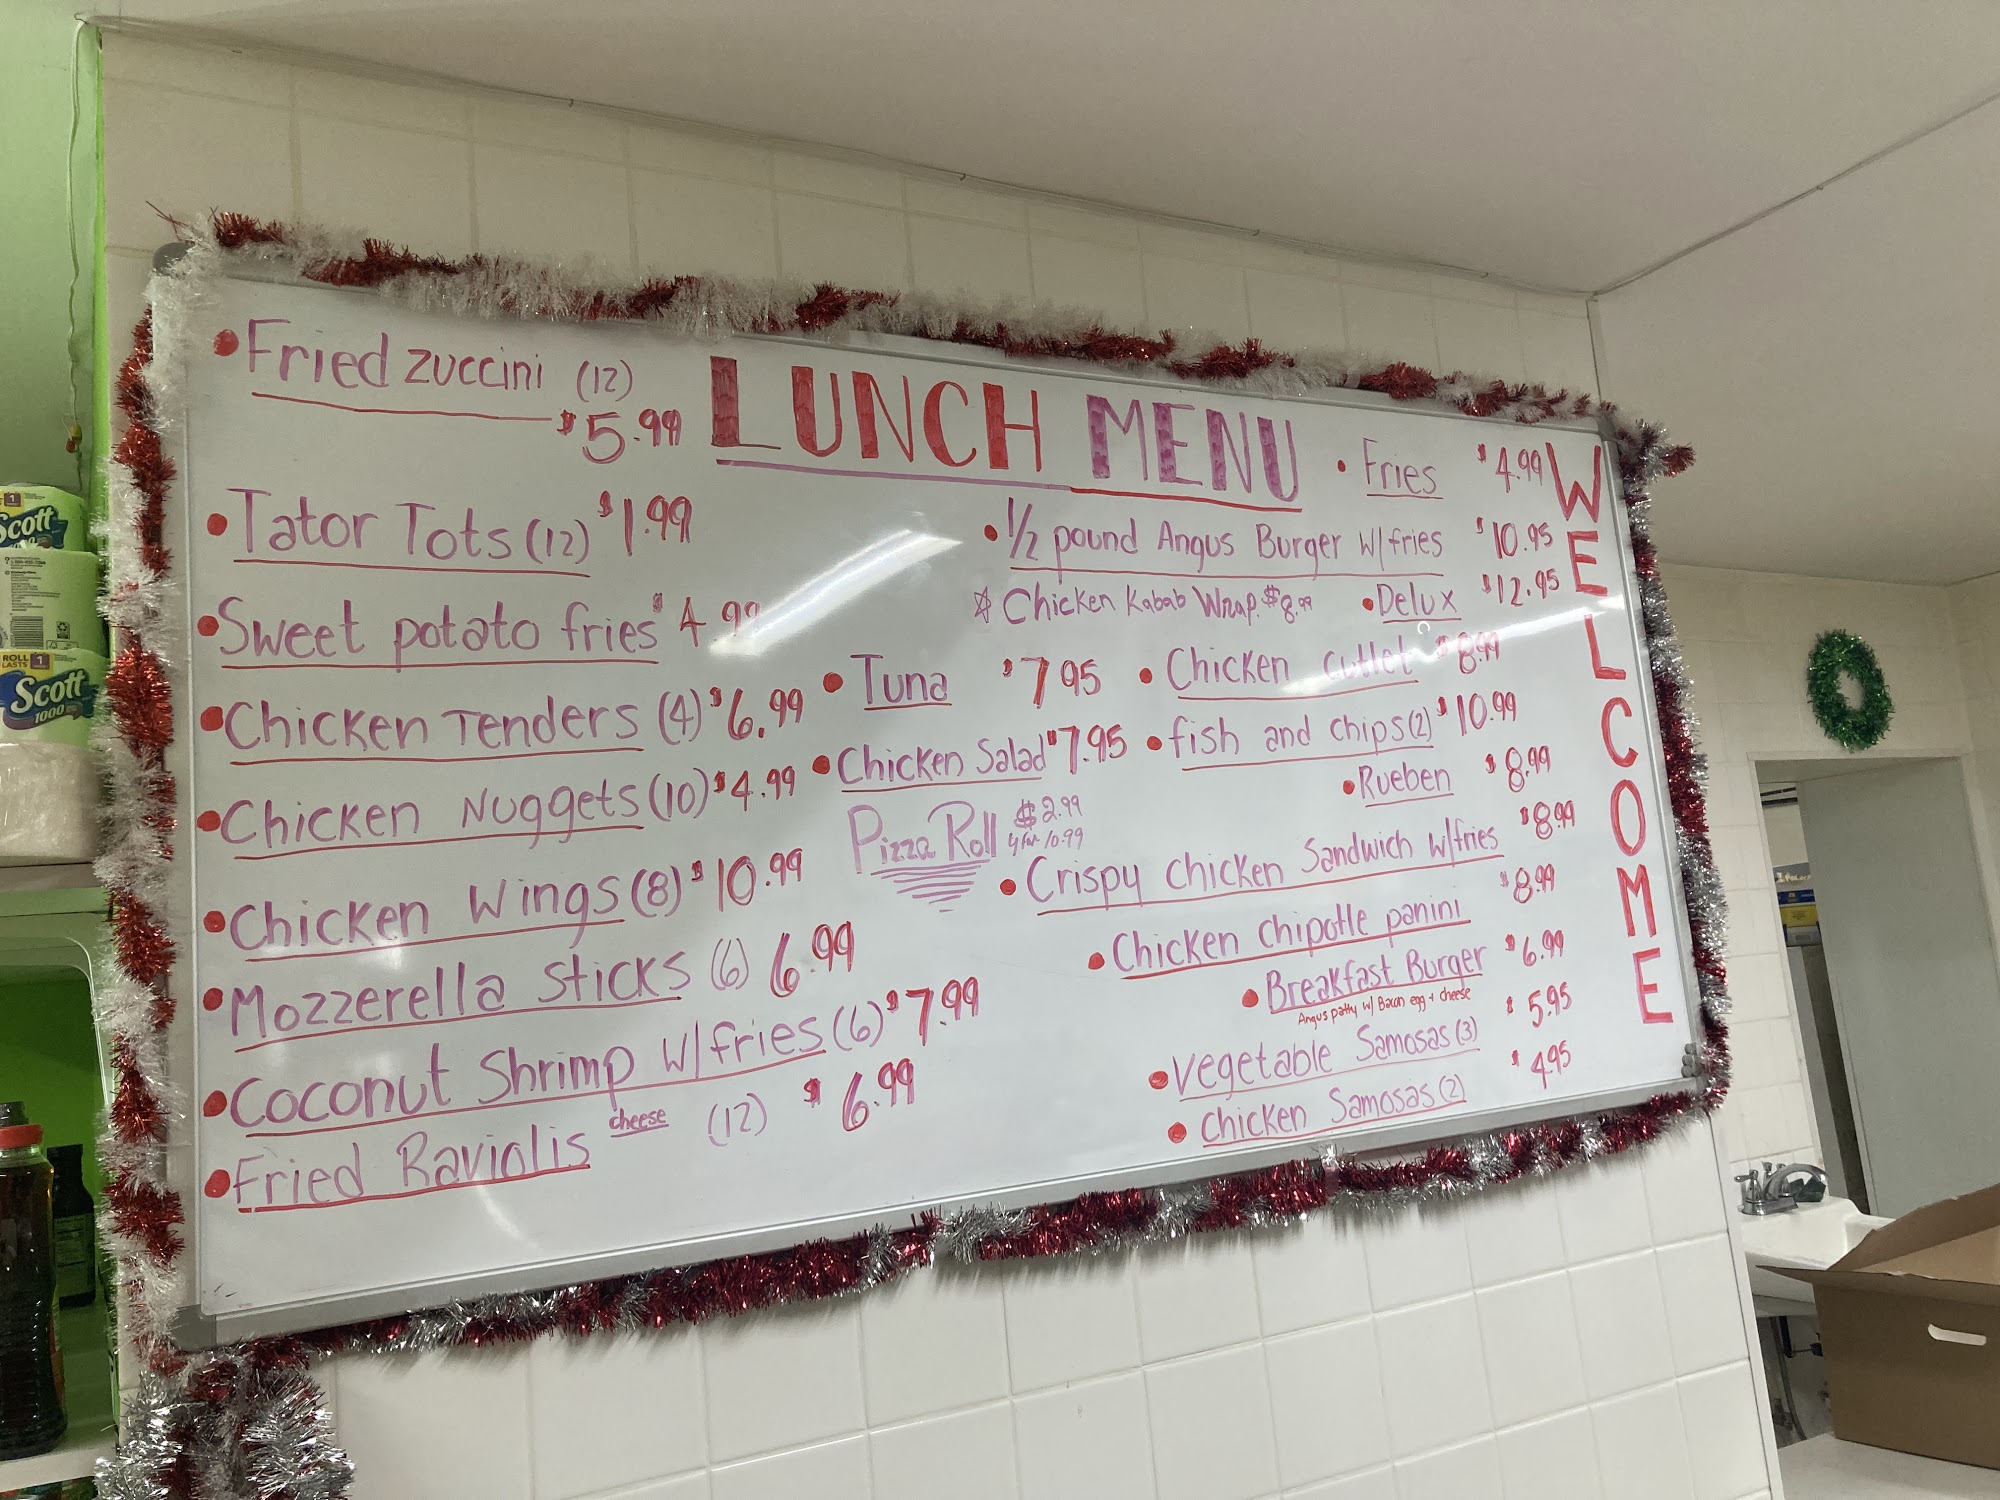 LUNCH MENU
• Fried zuccini (12)
$5.99
• Tator Tots (12) $1.99
• Sweet potato fries $4.99
• Chicken Tenders (4) $6.99
• Chicken Nuggets (10) $4.99
• Chicken Wings (8) $10.99
• Mozzerella Sticks (6) 6.99
• Coconut Shrimp w/fries (6) $7.99
• Fried Raviolis cheese (12) $6.99
• Tuna $7.95
• Chicken Salad $7.95
Pizza Roll $2.99
4 for 10.99
• Fries $4.99
• 1/2 pound Angus Burger w/fries $10.95
☆ Chicken Kabab Wrap. $8.99
• Delux $12.95
• Chicken Cutlet $8.99
• fish and chips (2) $10.99
• Rueben $8.99
• Crispy chicken Sandwich w/fries $8.99
• Chicken chipotle panini $8.99
• Breakfast Burger $6.99
Angus patty w/ Bacon egg + cheese
• Vegetable Samosas (3) $5.95
• Chicken Samosas (2) $4.95
WELCOME
Scott
ROLL LASTS 1
Scott
1000